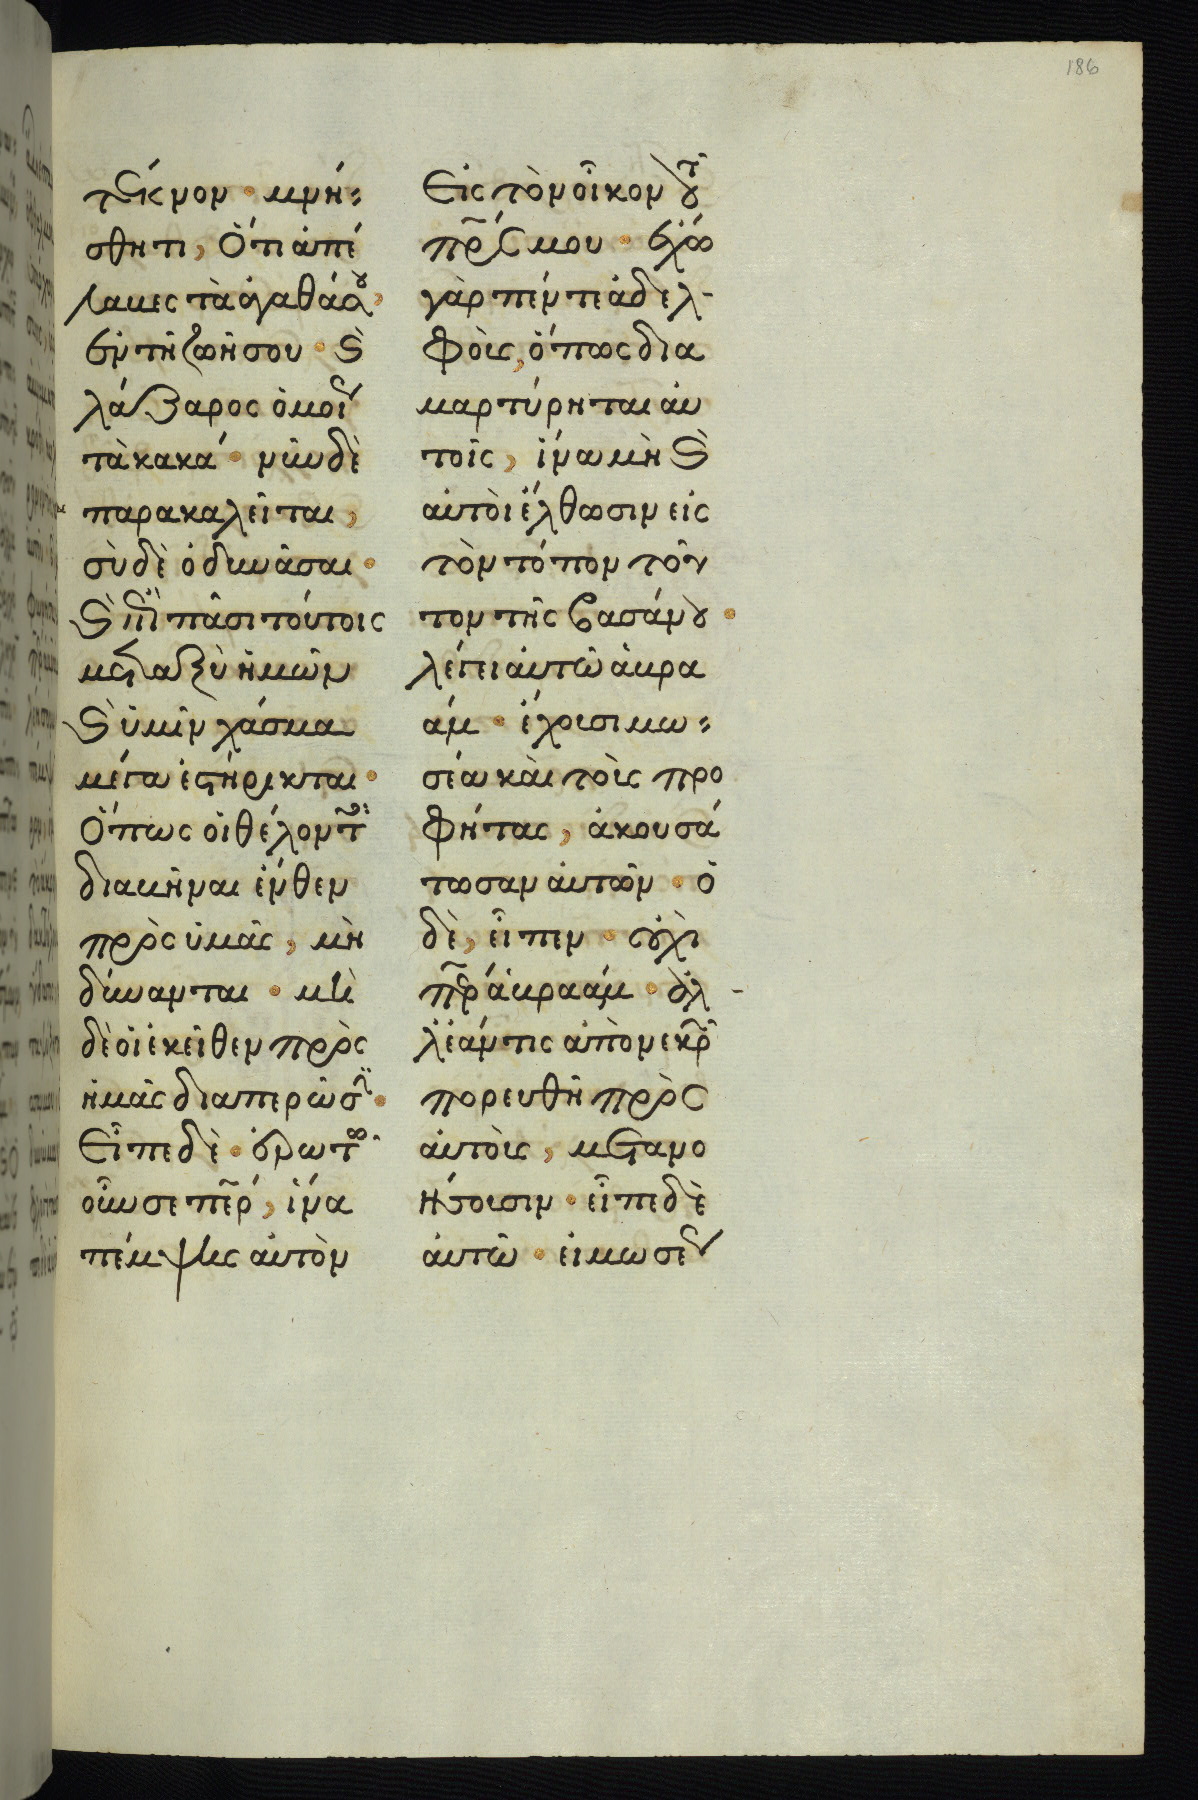 186
τέκνον · μνή-
σθητι, Ὅτι ἀπέ
λαβες τὰ ἀγαθά σου,
ἐν τῆ ζωῆ σου · καὶ
λάζαρος ὁμοί
τὰ κακά · νῦν δὲ
παρακαλεῖται,
σὺ δὲ ὀδυνᾶσαι ·
καὶ ἐπὶ πᾶσι τούτοις
μεταξὺ ἡμῶν
καὶ ὑμῶν χάσμα
μέγα ἐστήρικται ·
Ὅπως οἱ θέλοντ
διαβῆναι ἔνθεν
πρὸς ὑμᾶς, μὴ
δύνανται · μὴ
δὲ οἱ ἐκεῖθεν πρὸς
ἡμᾶς διαπερῶσϊ ·
Εἶπε δὲ · ἐρωτῶ
οὖν σε πε̅ρ, ἵνα
πέμψης αὐτὸν
Εἰς τὸν οἶκον τοῦ
πρ̅ς μου · ἔχω
γὰρ πέντε ἀδελ-
φοὺς, ὅπως δια
μαρτύρηται αυ
τοῖς, ἵνα μὴ καὶ
αὐτοὶ ἔλθωσιν εἰς
τὸν τόπον τοῦ
τον τῆς βασάνου ·
λέγει αὐτῶ ἀβρα
άμ · ἔχουσι μω-
σέα καὶ τοὺς προ
φήτας, ἀκουσά
τωσαν αὐτῶν · ὁ
δὲ, εἶπεν · οὐχὶ
πε̅ρ ἀβραάμ · ἀλ-
λ' ἐάν τις ἀπὸ νεκρ
πορευθῆ πρὸς
αὐτοὺς, μετανο
ήσουσιν · εἶπε δὲ
αὐτῶ · εἰ μωσέ